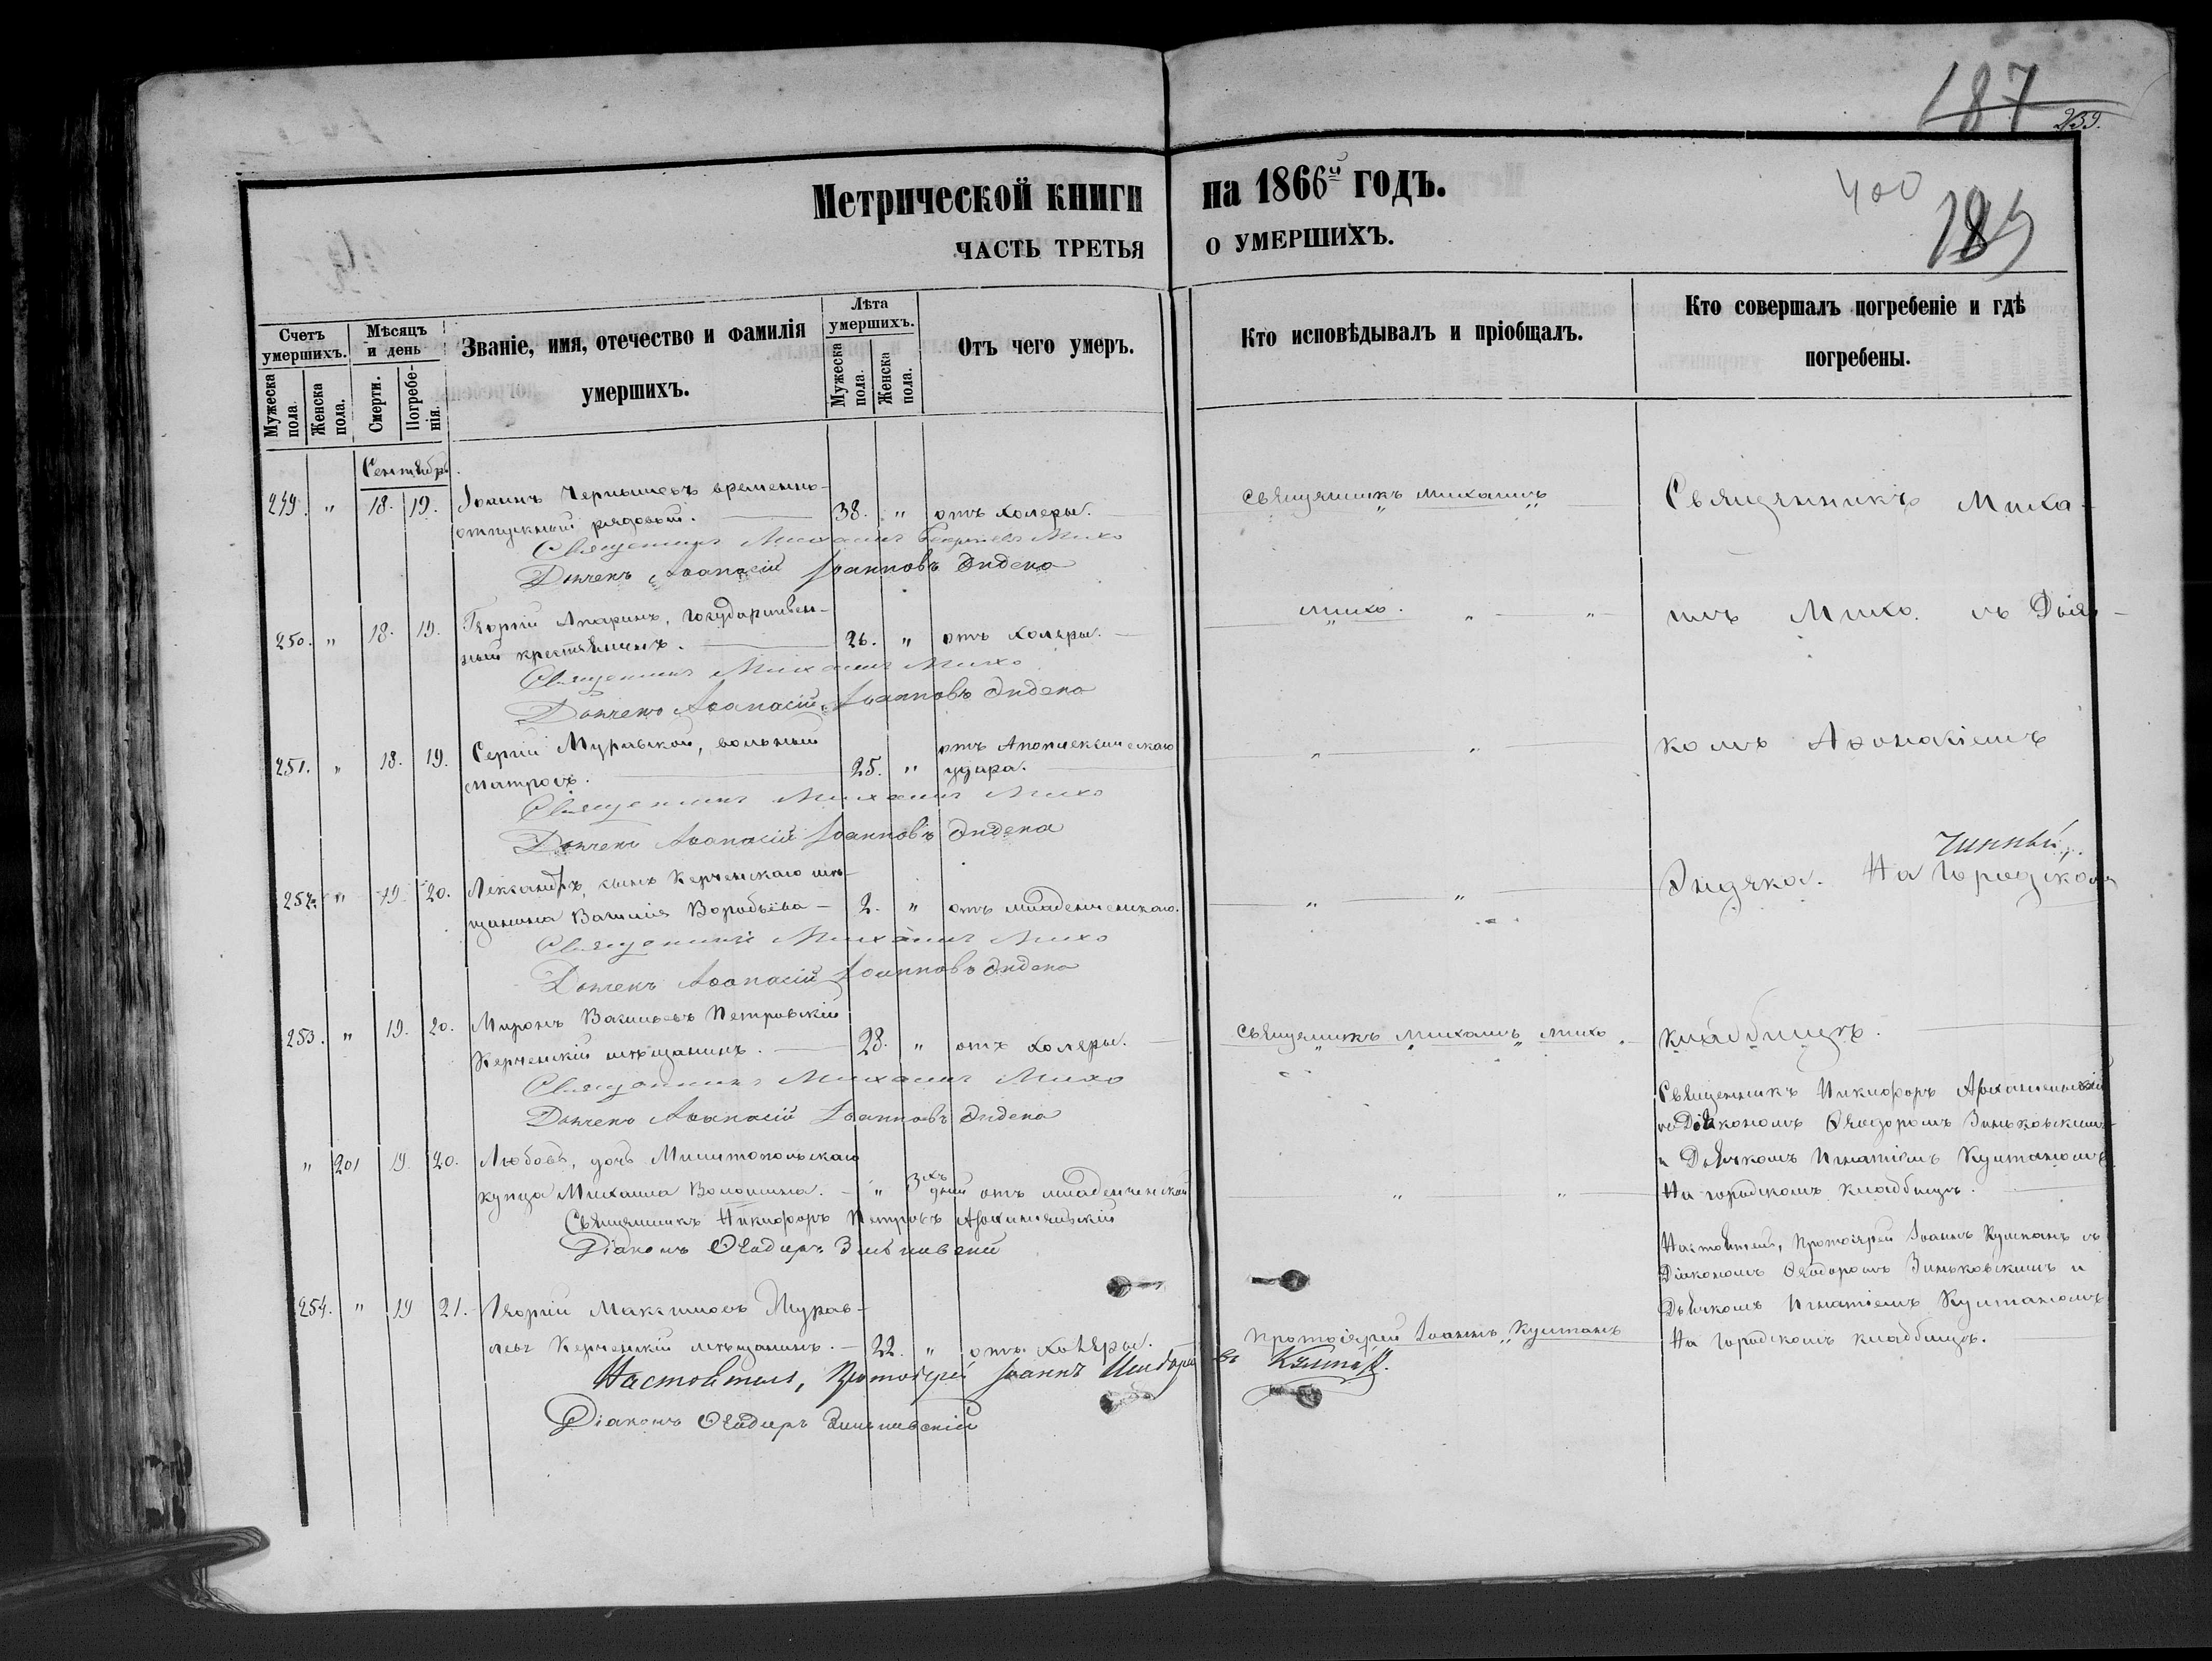 187
239.
Метрической книги на 1866й годъ.
400
ЧАСТЬ ТРЕТЬЯ О УМЕРШИХЪ.
Счетъ умершихъ.
Мужеска пола.
Женска пола.
Мѣсяцъ и день
Смерти.
Погребенія.
Званіе, имя, отечество и фамилія умершихъ.
Лѣта умершихъ.
Мужеска пола.
Женска пола.
Отъ чего умеръ.
Кто исповѣдывалъ и пріобщалъ.
Кто совершалъ погребеніе и гдѣ погребены.
Сентябрь.
249. " 18. 19. Іоаннъ Чернышевъ временно-
отпускный рядовый. 38. " отъ холеры.
Священникъ Михаилъ Георгіевъ Михо
Дьячекъ Аѳанасій Іоанновъ Диденко
250. " 18. 19. Георгій Апаринъ, государствен-
ный крестьянинъ. 26. " отъ холеры.
Священникъ Михаилъ Михо
Дьячекъ Аѳанасій Іоанновъ
251. " 18. 19. Сергій Муравской, вольный
матросъ. 25. " отъ Апоплексическаго
удара.
Священникъ Михаилъ Михо
Дьячекъ Аѳанасій Іоанновъ
252. " 19. 20. Александръ, сынъ Керченскаго мѣ-
щанина Василія Воробьева 2. " отъ младенческаго.
Священникъ Михаилъ Михо
Дьячекъ Аѳанасій Іоанновъ
253. " 19. 20. Миронъ Васильевъ Петровскій
Керченскій мѣщанинъ. 28. " отъ холеры.
Священникъ Михаилъ Михо
Дьячекъ Аѳанасій Іоанновъ
" 201 19. 20. Любовь, дочь Мелитопольскаго
купца Михаила Волошина. " 3хъ дней отъ младенческой
Священникъ Никифоръ Петровъ
Діаконъ Ѳеодоръ Зиньковскій
254. " 19 21. Георгій Максимовъ Журав-
левъ Керченскій мѣщанинъ. 22. " отъ холеры.
Настоятель, Протоіерей Іоаннъ
Діаконъ Ѳеодоръ Зиньковскій
Священникъ Михаилъ
Михо.
Священникъ Михаилъ Михо
Протоіерей Іоаннъ Кушманъ
Священникъ Миха-
илъ Михо съ Дьяч-
комъ Аѳонасіемъ
На городскомъ
кладбищѣ.
Священникъ Никифоръ
съ Діакономъ Ѳеодоромъ Зиньковскимъ
и Дьячкомъ Игнатіемъ
На городскомъ кладбищѣ.
Настоятель, Протоіерей Іоаннъ Кушманъ съ
Діакономъ Ѳеодоромъ Зиньковскимъ и
Дьячкомъ Игнатіемъ
На городскомъ кладбищѣ.